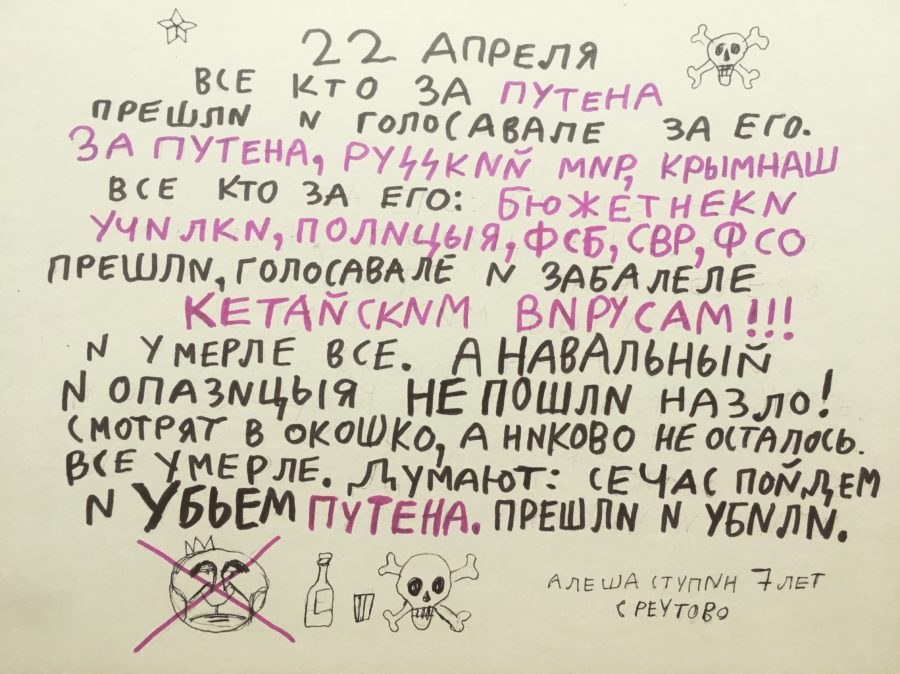 22 АПРЕЛЯ
ВСЕ КТО ЗА ПУТЕНА
ПРЕШЛИ И ГОЛОСАВАЛЕ ЗА ЕГО.
ЗА ПУТЕНА, РУϟϟКИЙ МИР, КРЫМНАШ
ВСЕ КТО ЗА ЕГО: БЮЖЕТНЕКИ
УЧИЛКИ, ПОЛИЦЫЯ, ФСБ, СВР, ФСО
ПРЕШЛИ, ГОЛОСАВАЛЕ И ЗАБАЛЕЛЕ
КЕТАЙСКИМ ВИРУСАМ!!!
И УМЕРЛЕ ВСЕ. А НАВАЛЬНЫЙ
И ОПАЗИЦЫЯ НЕ ПОШЛИ НАЗЛО!
СМОТРЯТ В ОКОШКО, А НИКОВО НЕ ОСТАЛОСЬ.
ВСЕ УМЕРЛЕ. ДУМАЮТ: СЕЧАС ПОЙДЕМ
И УБЬЕМ ПУТЕНА. ПРЕШЛИ И УБИЛИ.
АЛЕША СТУПИН 7 ЛЕТ
С РЕУТОВО